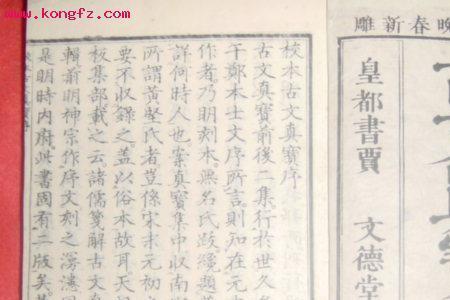 www.kongfz.com
晚春新雕
皇都書賈 文德堂
校本古文真寶序
古文真寶前後二集行於世久
于鄭本士文序所言則知在元
作者乃明刻本無名氏跋纔題
詳何時人也案真寶集中收南
所謂黃堅氏者豈係宋末元初
要不收錄之蓋以俗本故耳天
板集部載之云諸儒箋解古文真
輯前明神宗作序文刻之
是明時内府此書固有二版矣